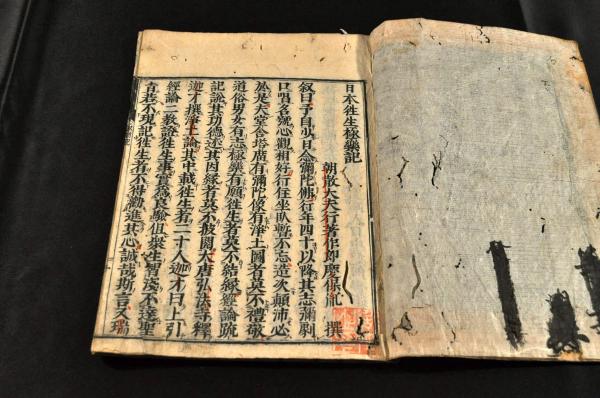 日本徃生極樂記
朝散大夫行著作郎慶保胤 撰
叙曰予自少日念彌陀佛行年四十以降其志彌劇
口唱名號心觀相好行住坐臥暫不忘造次顛沛必
於是夫堂舍塔廟有彌陀像有淨土圖者莫不禮敬
道俗男女有志極樂有願徃生者莫不結緣經論疏
記說其功德述其因緣者莫不披閱大唐弘法寺釋
迦才撰淨土論其中載徃生者二十人迦才曰上引
經論二教證徃生事實為良驗但衆生智淺不達聖
旨若不現記徃生者不得勸進其心誠哉斯言又瑞